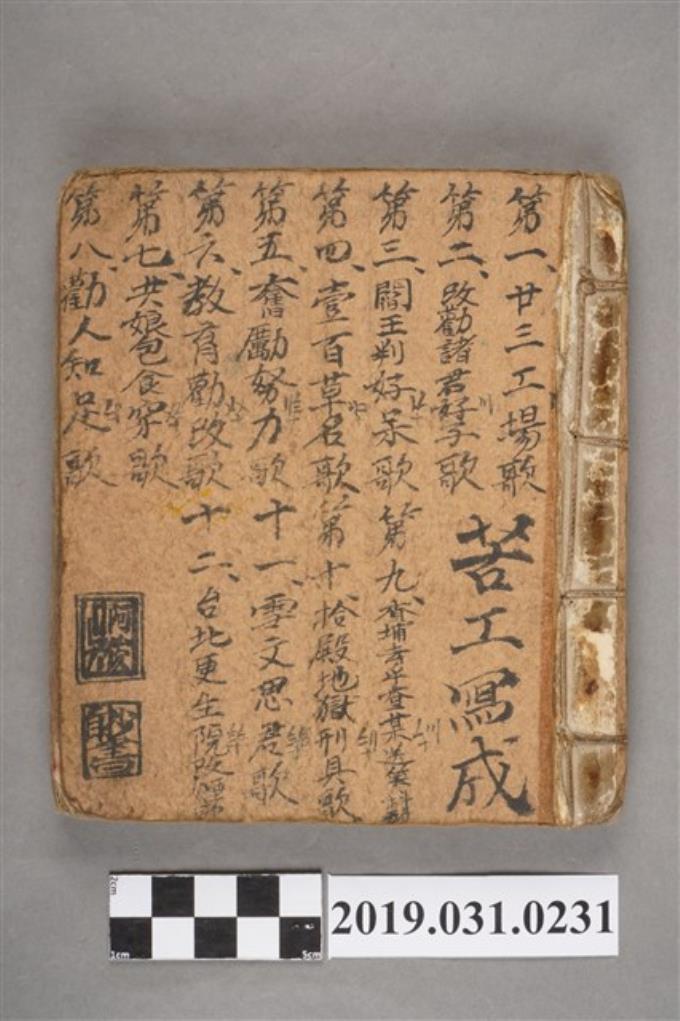 第一、廿三工場歌
第二、改勸諸君好子歌
第三、閻王判好呆歌
第四、壹百草名歌
第五、奮勵努力歌
第六、教育勸改歌
第七、共娘包食穿歌
第八、勸人知足歌
苦工寫成
第九、
第十、拾殿地獄刑具歌
十一、雪文思君歌
十二、台北更生院改
2cm
1cm
5cm
2019.031.0231